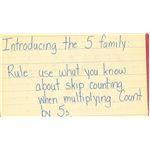 Introducing the 5 family:
Rule: use what you know
about skip counting
when multiplying. Count
by 5s.